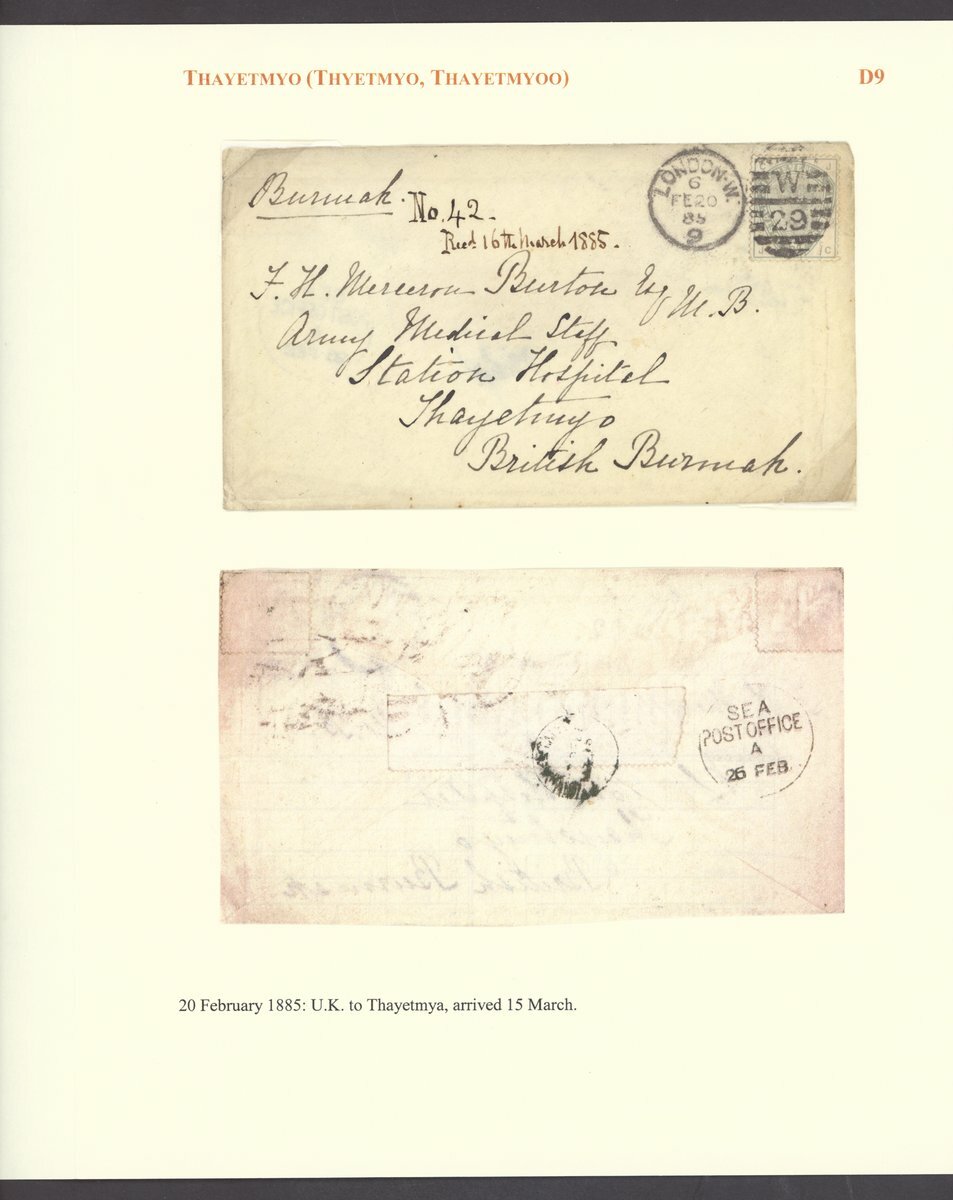 THAYETMYO (THYETMYO, THAYETMYOO)
D9
Burmah.
No. 42.
Recd 16th March 1885.
LONDON·W.
6
FE20
85
9
W
29
J
C
F. H. Merceron Burton Esq M. B.
Army Medical Staff
Station Hospital
Thayetmyo
British Burmah.
SEA
POST OFFICE
A
26 FEB.
20 February 1885: U.K. to Thayetmya, arrived 15 March.